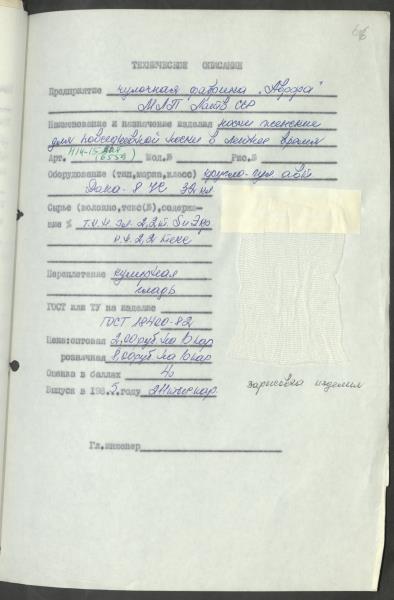 66
ТЕХНИЧЕСКОЕ ОПИСАНИЕ
Предприятие чулочная фабрика "Аврора"
МЛП Латв ССР
Наименование и назначение изделия носки женские
для повседневной носки в летнее время
Арт. 414-15 (6535) Мод.№ Рис.№
Оборудование (тип,марка,класс) кругло-чул авт
Дана-8 ЧС 32 кл
Сырье (волокно,текс(№),содержание %
Переплетение кулирная
гладь
ГОСТ или ТУ на изделие
ГОСТ 18400-82
Цена:оптовая 2,00руб за 10 пар
розничная 8,00руб за 10 пар
Оценка в баллах 40
Выпуск в 1985 году
зарисовка изделия
Гл.инженер